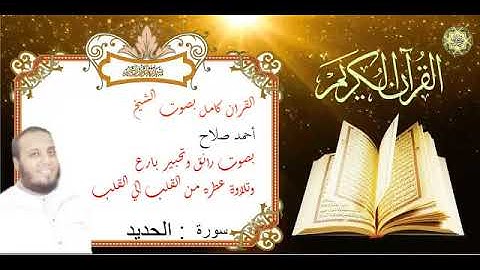 القرآن الكريم
القران كامل بصوت الشيخ
أحمد صلاح
بصوت رائق وتحبير بارع
وتلاوة عطره من القلب الي القلب
سورة : الحديد